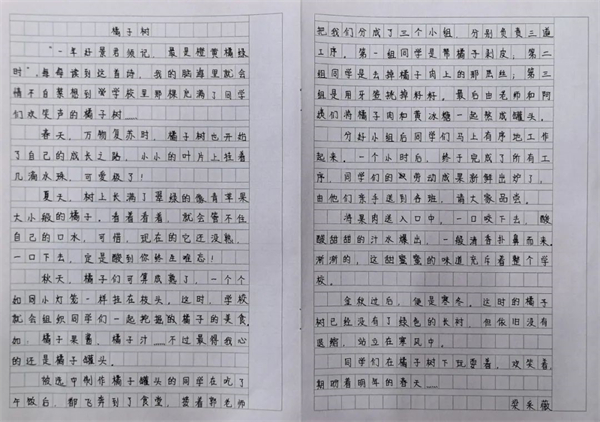 橘子树
“一年好景君须记，最是橙黄橘绿
时”，每每读到这首诗，我的脑海里就会
情不自禁想到学校里那棵充满了同学
们欢笑声的橘子树……
春天，万物复苏时，橘子树也开始
了自己的成长之路，小小的叶片上挂着
几滴水珠，可爱极了！
夏天，树上长满了翠绿的像青苹果
大小般的橘子。看着看着，就会管不住
自己的口水，可惜，现在的它还没熟，
一口下去，定是酸到你终生难忘！
秋天，橘子们可算成熟了，一个个
如同小灯笼一样挂在枝头，这时，学校
就会组织同学们一起挖掘橘子的美食，
如：橘子果酱、橘子汁……不过最得我心
的还是橘子罐头。
被选中制作橘子罐头的同学在吃了
午饭后，都飞奔到了食堂，等着郭老师
把我们分成了三个小组，分别负责三道
工序。第一组同学是帮橘子剥皮；第二
组同学是去掉橘子肉上的那黑丝；第三
组是用牙签挑掉籽籽。最后由老师和阿
姨们将橘子肉和黄冰糖一起熬成罐头。
分好小组后同学们马上有序地工作
起来。一个小时后，终于完成了所有工
序，同学们的劳动成果新鲜出炉了，
由他们亲手送到各班，请大家品尝。
将果肉送入口中，一口咬下去，酸
酸甜甜的汁水爆出，一股清香扑鼻而来，
渐渐的，这甜蜜蜜的味道充斥着整个学
校。
金秋过后，便是寒冬。这时的橘子
树已经没有了绿色的长衬，但依旧没有
退缩，站立在寒风中。
同学们在橘子树下玩耍着，欢笑着，
期盼着明年的春天……
梁采薇